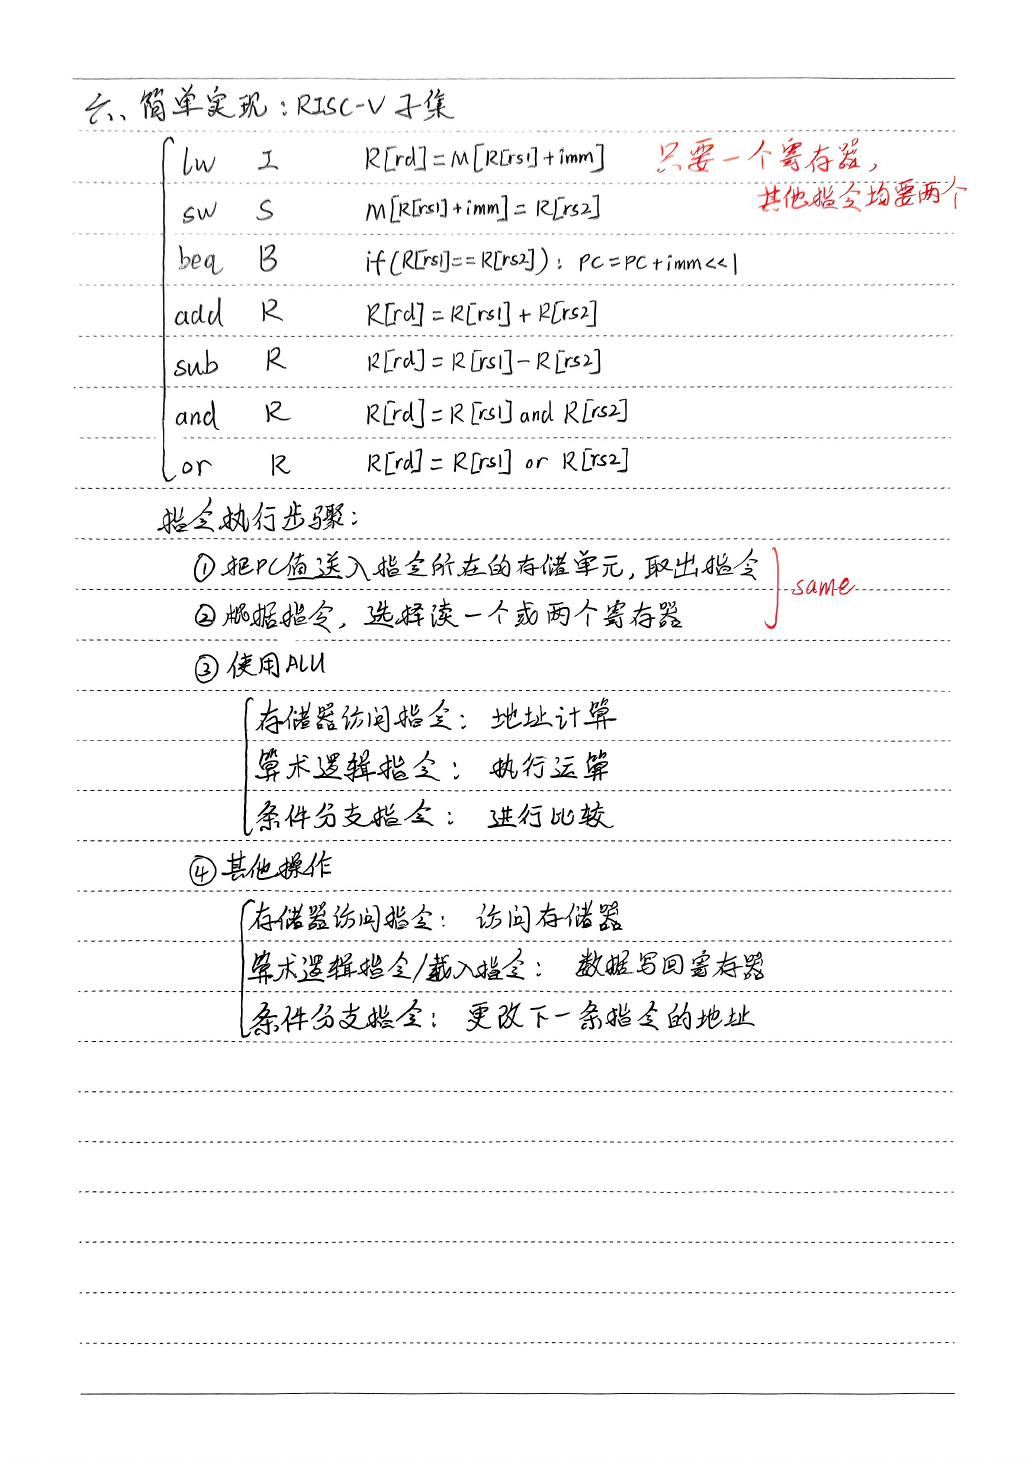 六、简单实现：RISC-V子集
lw I R[rd]=M[R[rs1]+imm] 只要一个寄存器，
其他指令均要两个
sw S M[R[rs1]+imm]=R[rs2]
beq B if(R[rs1]==R[rs2]): PC=PC+imm<<1
add R R[rd]=R[rs1]+R[rs2]
sub R R[rd]=R[rs1]-R[rs2]
and R R[rd]=R[rs1] and R[rs2]
or R R[rd]=R[rs1] or R[rs2]
指令执行步骤：
①把PC值送入指令所在的存储单元，取出指令
same
②根据指令，选择读一个或两个寄存器
③使用ALU
存储器访问指令：地址计算
算术逻辑指令：执行运算
条件分支指令：进行比较
④其他操作
存储器访问指令：访问存储器
算术逻辑指令/载入指令：数据写回寄存器
条件分支指令：更改下一条指令的地址